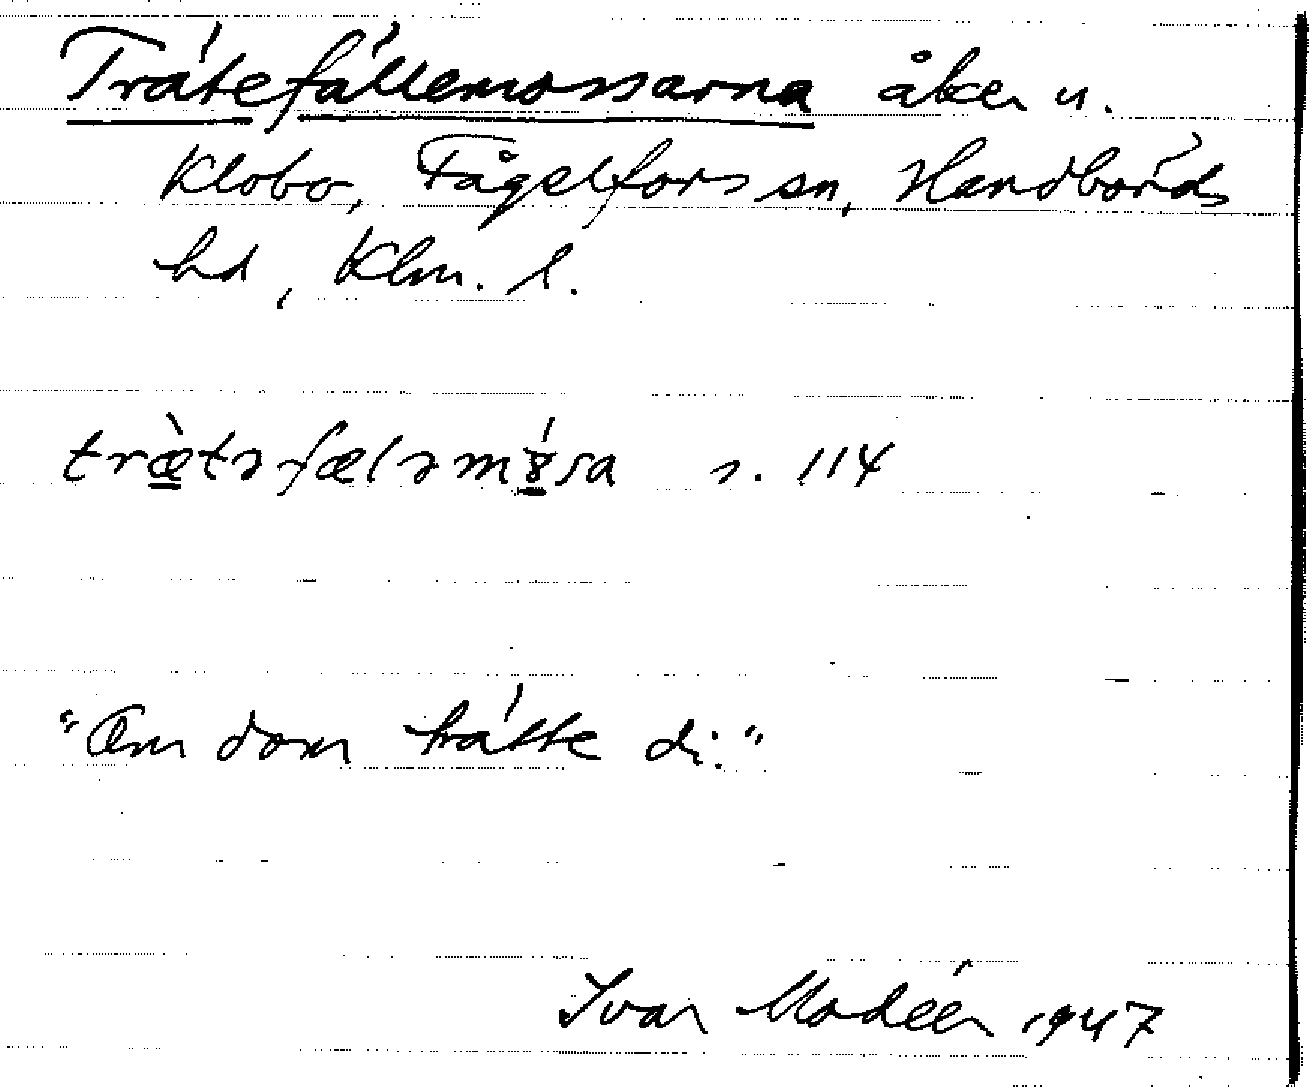 Trätefällemossarna åker u.
Klobo, Fågelfors sn, Handbörds
hd, Klm. l.
træ̀təfæləmɤ́sa s. 114
"Om dom trätte di."
Ivar Modéer 1947